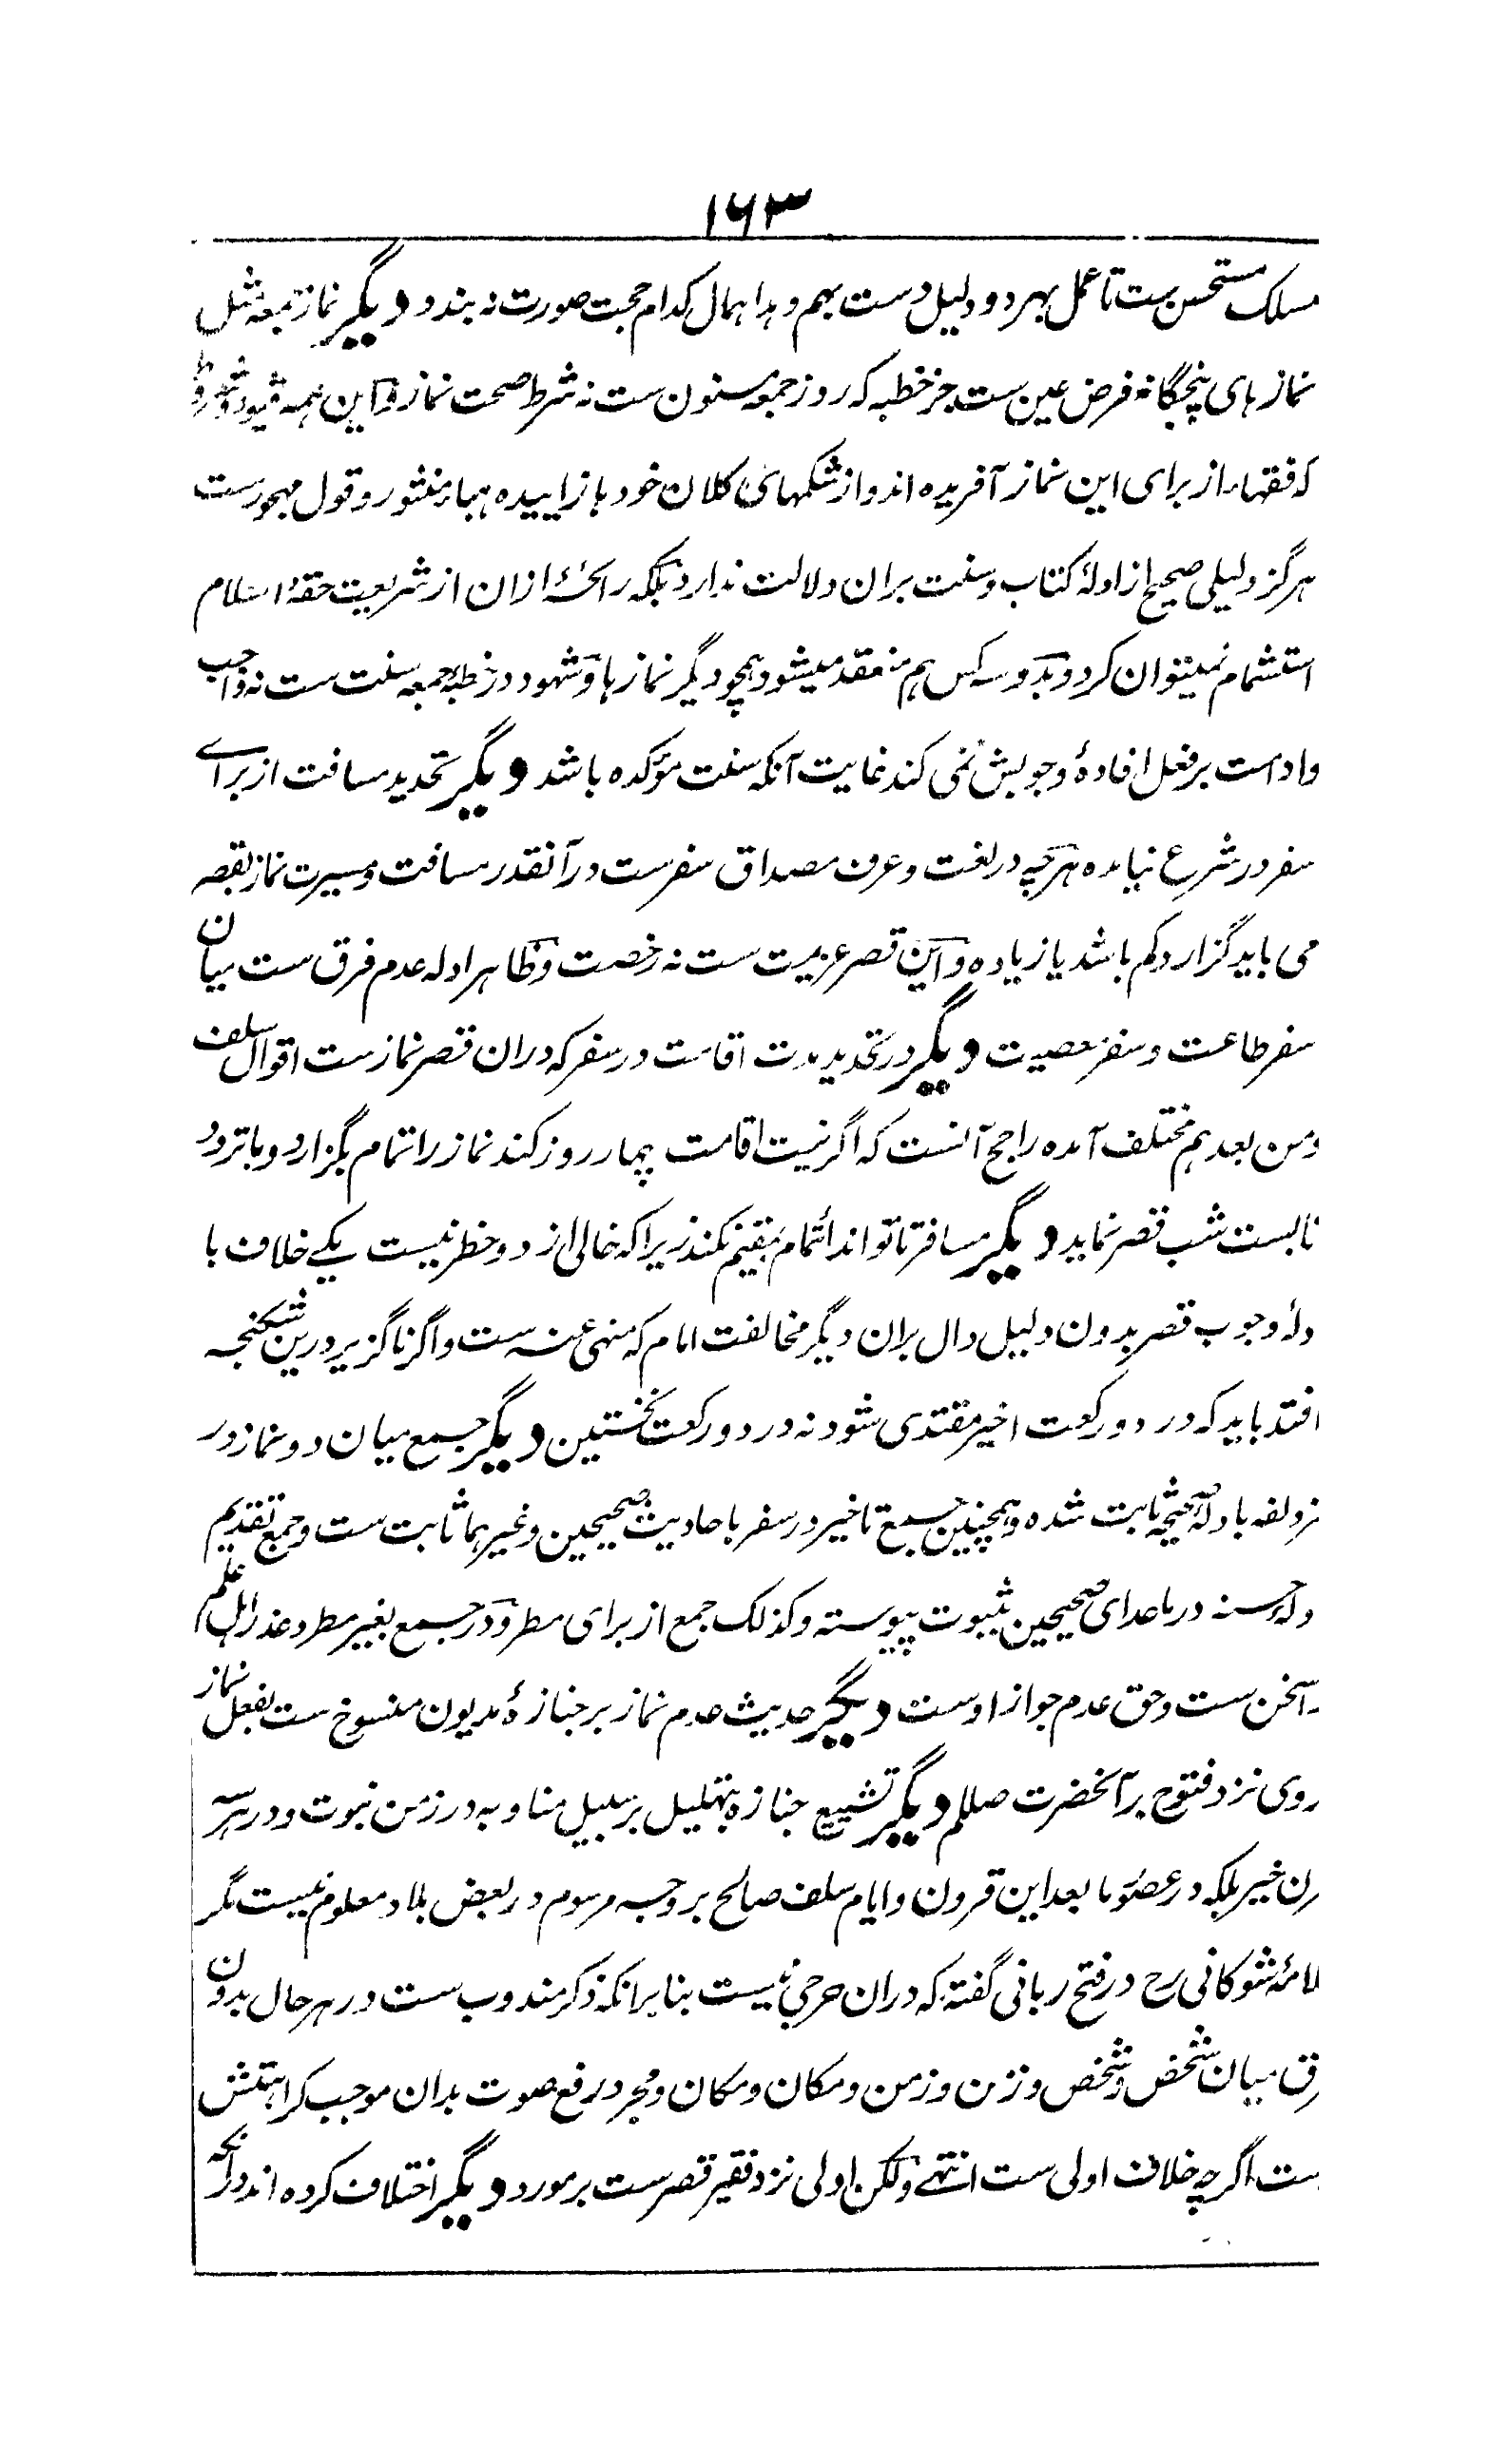 ۱۶۳
مسلک مستحسن ست تا عمل بهر دو دلیل دست بهم دهد و اهمال کدام حجت صورت نه بندد دیگر نماز جمعه مثل
نمازهای پنجگانه فرض عین ست جز خطبه که روز جمعه مسنون ست نه شرط صحت نماز و این همه قیود و شروط
که فقها از برای این نماز آفریده اند و از شکمهای کلان خود باز زاییده هباء منثور و قول مهجورست
هرگز دلیلی صحیح از ادلهٔ کتاب و سنت بران دلالت ندارد بلکه رائحهٔ ازان از شریعت حقهٔ اسلام
استشمام نمیتوان کرد و بدو سه کس هم منعقد میشود همچو دیگر نمازها و شهود در خطبهٔ جمعه سنت ست نه واجب
و ادامت بر فعل افادهٔ وجوبش نمی کند غایت آنکه سنت مؤکده باشد دیگر تحدید مسافت از برای
سفر در شرع نیامده هرچه در لغت و عرف مصداق سفرست در آنقدر مسافت و مسیرت نماز بقصر
می باید گزارد کم باشد یا زیاده و این قصر عزیمت ست نه رخصت و ظاهر ادله عدم فرق ست میان
سفر طاعت و سفر معصیت دیگر در تحدید مدت اقامت در سفر که دران قصر نمازست اقوال سلف
ومن بعدهم مختلف آمده راجح آنست که اگر نیت اقامت چهار روز کند نماز را تمام بگزارد و با تردد
تا بست شب قصر نماید دیگر مسافر تا تواند ائتمام بمقیم نکند زیرا که خالی از دو خطر نیست یکی خلاف با
دلهٔ وجوب قصر بدون دلیل دال بران دیگر مخالفت امام که منهی عنه ست و اگر ناگزیر درین شکنجه
افتد باید که در دو رکعت اخیر مقتدی شود نه در دو رکعت نخستین دیگر جمع میان دو نماز در
مزدلفه بادلهٔ صحیحه ثابت شده و همچنین جمع تاخیر در سفر باحادیث صحیحین و غیرهما ثابت ست و جمع تقدیم
دلهٔ حسنه در ماعدای صحیحین بثبوت پیوسته و کذلک جمع از برای مطر و در جمع بغیر مطر و عذر اهل علم
را سخن ست و حق عدم جواز اوست دیگر حدیث عدم نماز بر جنازهٔ مدیون منسوخ ست بفعل نماز
روی نزد فتوح بر آنحضرت صللم دیگر تشییع جنازه بتهلیل بر سبیل مناوبه در زمن نبوت و در هر سه
رن خیر بلکه در عصر ما بعد این قرون و ایام سلف صالح بر وجه مرسوم در بعض بلاد معلوم نیست مگر
لامهٔ شوکانی رح در فتح ربانی گفته که دران حرجی نیست بنا برانکه ذکر مندوب ست در هر حال بدون
رق میان شخص و شخص و زمن و زمن و مکان و مکان و مجرد رفع صوت بدان موجب کراهتش
ست اگرچه خلاف اولی ست انتهی ولکن اولی نزد فقیر قصرست بر مورد دیگر اختلاف کرده اند در آنکه